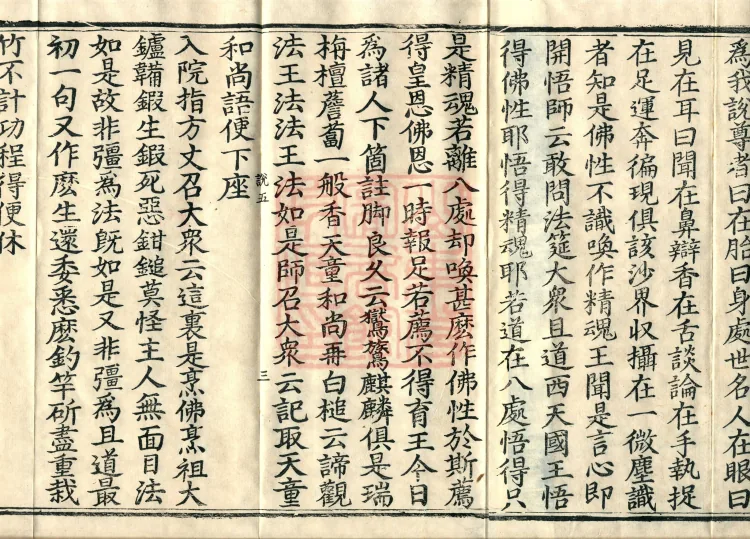 爲我說尊者曰在胎曰身處世名人在眼曰
見在耳曰聞在鼻辯香在舌談論在手執捉
在足運奔徧現俱該沙界収攝在一微塵識
者知是佛性不識喚作精魂王聞是言心即
開悟師云敢問法筵大衆且道西天國王悟
得佛性耶悟得精魂耶若道在八處悟得只
是精魂若離八處却喚甚麽作佛性於斯薦
得皇恩佛恩一時報足若薦不得育王今日
爲諸人下箇註脚良久云鸑鷟麒麟俱是瑞
栴檀薝蔔一般香天童和尚再白槌云諦觀
法王法法王法如是師召大衆云記取天童
說五
三
和尚語便下座
入院指方丈召大衆云這裏是烹佛烹祖大
鑪鞴鍜生鍜死惡鉗鎚莫怪主人無面目法
如是故非彊爲法旣如是又非彊爲且道最
初一句又作麽生還委悉麽釣竿斫盡重栽
竹不計功程得便休